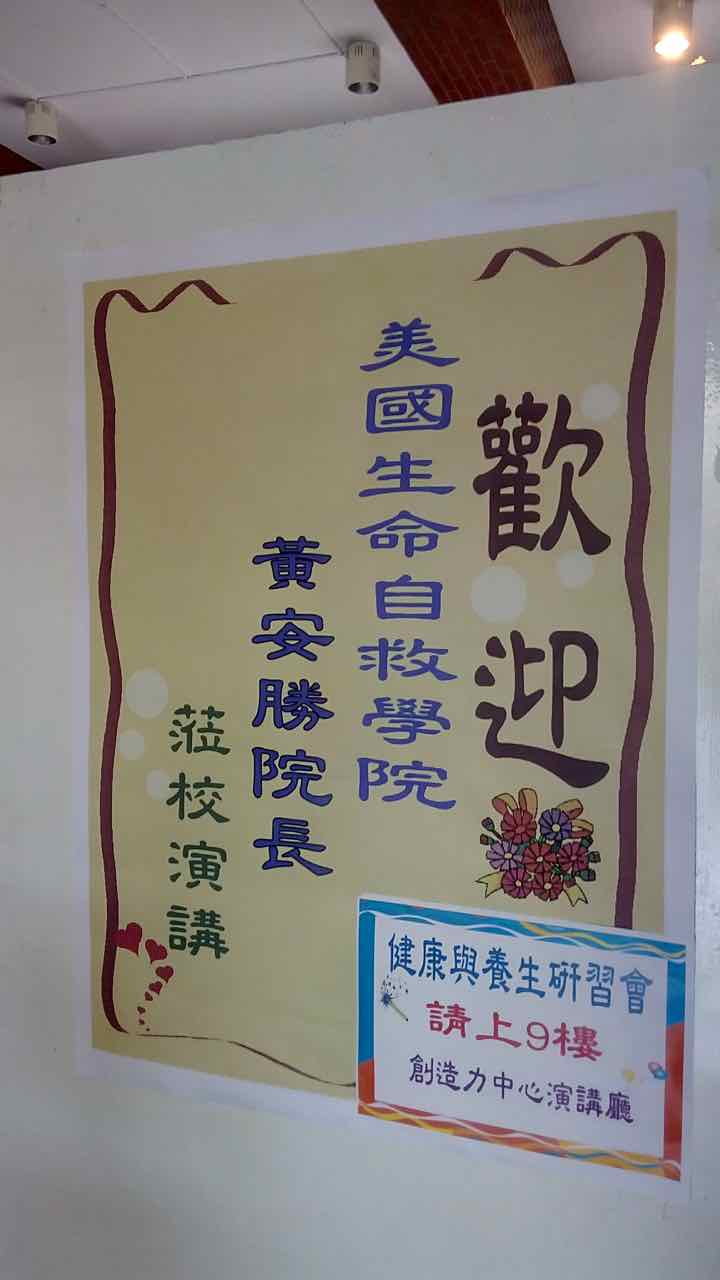 歡迎
美國生命自救學院
黃安勝院長
蒞校演講
健康與養生研習會
請上9樓
創造力中心演講廳